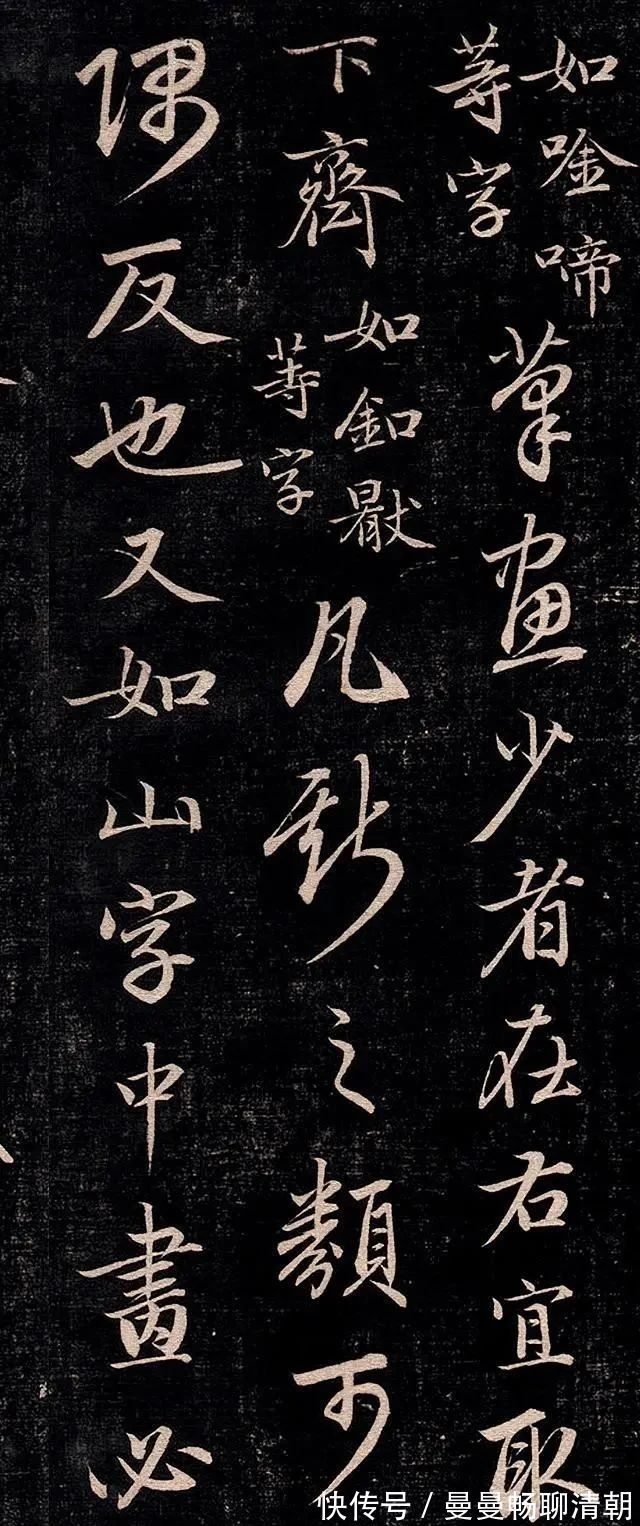 如唫啼等字筆畫少者在右宜取
下齊如釦等字凡斯之類可
隅反也又如山字中畫必
快传号 / 曼曼畅聊清朝